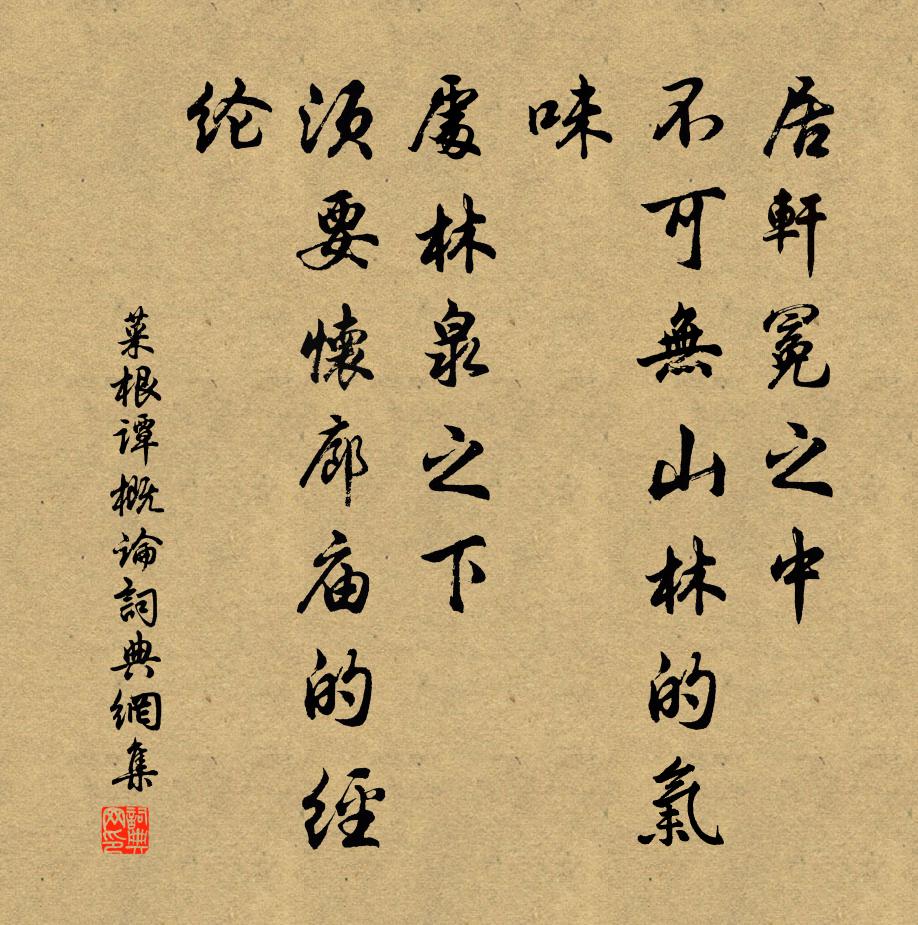 居軒冕之中
不可無山林的氣
味
處林泉之下
須要懷廊庙的經
纶
菜根谭概論詞典網集
詞典网印